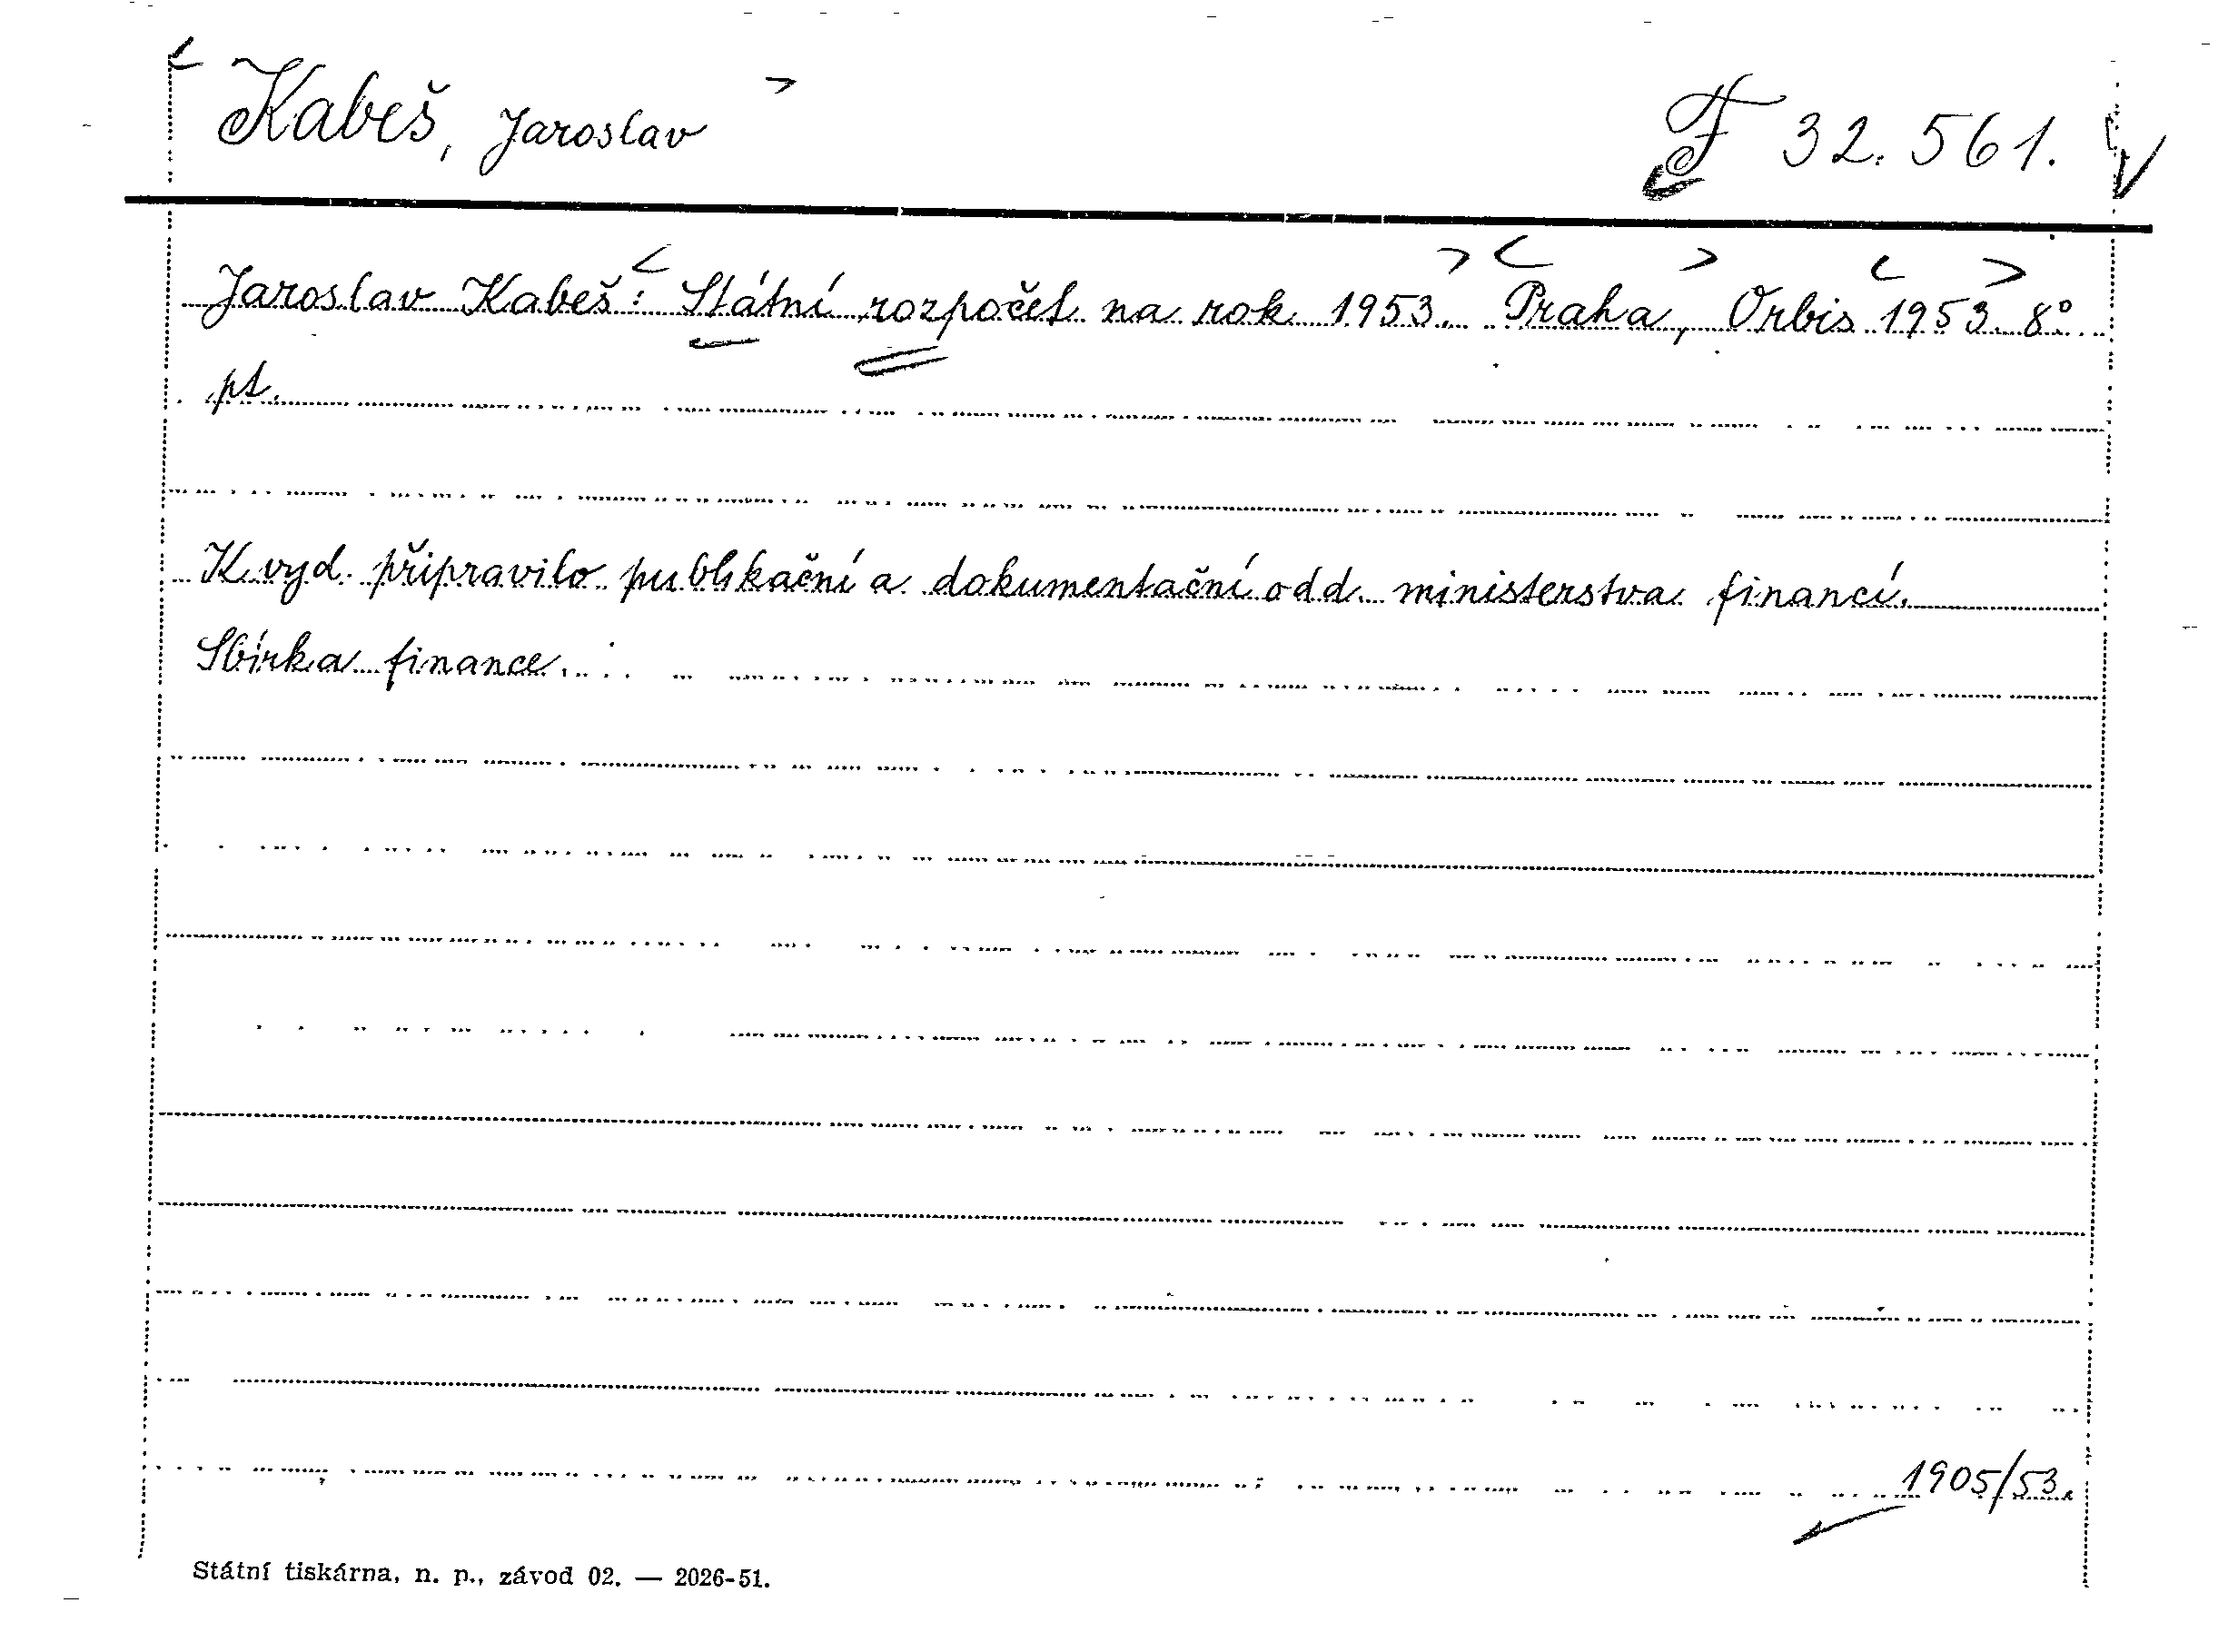 Kabeš, Jaroslav F 32.561.
Jaroslav Kabeš: Státní rozpočet na rok 1953. Praha, Orbis 1953. 8°
pt.
K vyd. připravilo publikační a dokumentační odd. ministerstva financí.
Sbírka finance.
1905/53.
Státní tiskárna, n. p., závod 02. — 2026-51.